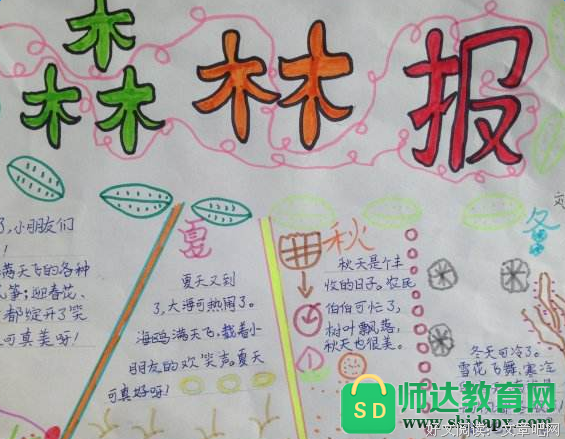 森林报
了,小朋友们
!
满天飞的各种
风筝;迎春花、
都绽开了笑
可真美呀!
夏
夏天又到
了,大海可热闹了。
海鸥满天飞,载着小
朋友的欢笑声。夏天
可真好呀!
秋
秋天是个丰
收的日子。农民
伯伯可忙了,
树叶飘落,
秋天也很美。
冬
冬天可冷了。
雪花飞舞,寒冷
师达教育网
SD
www.shidapx.com
好文阅读:文章吧网